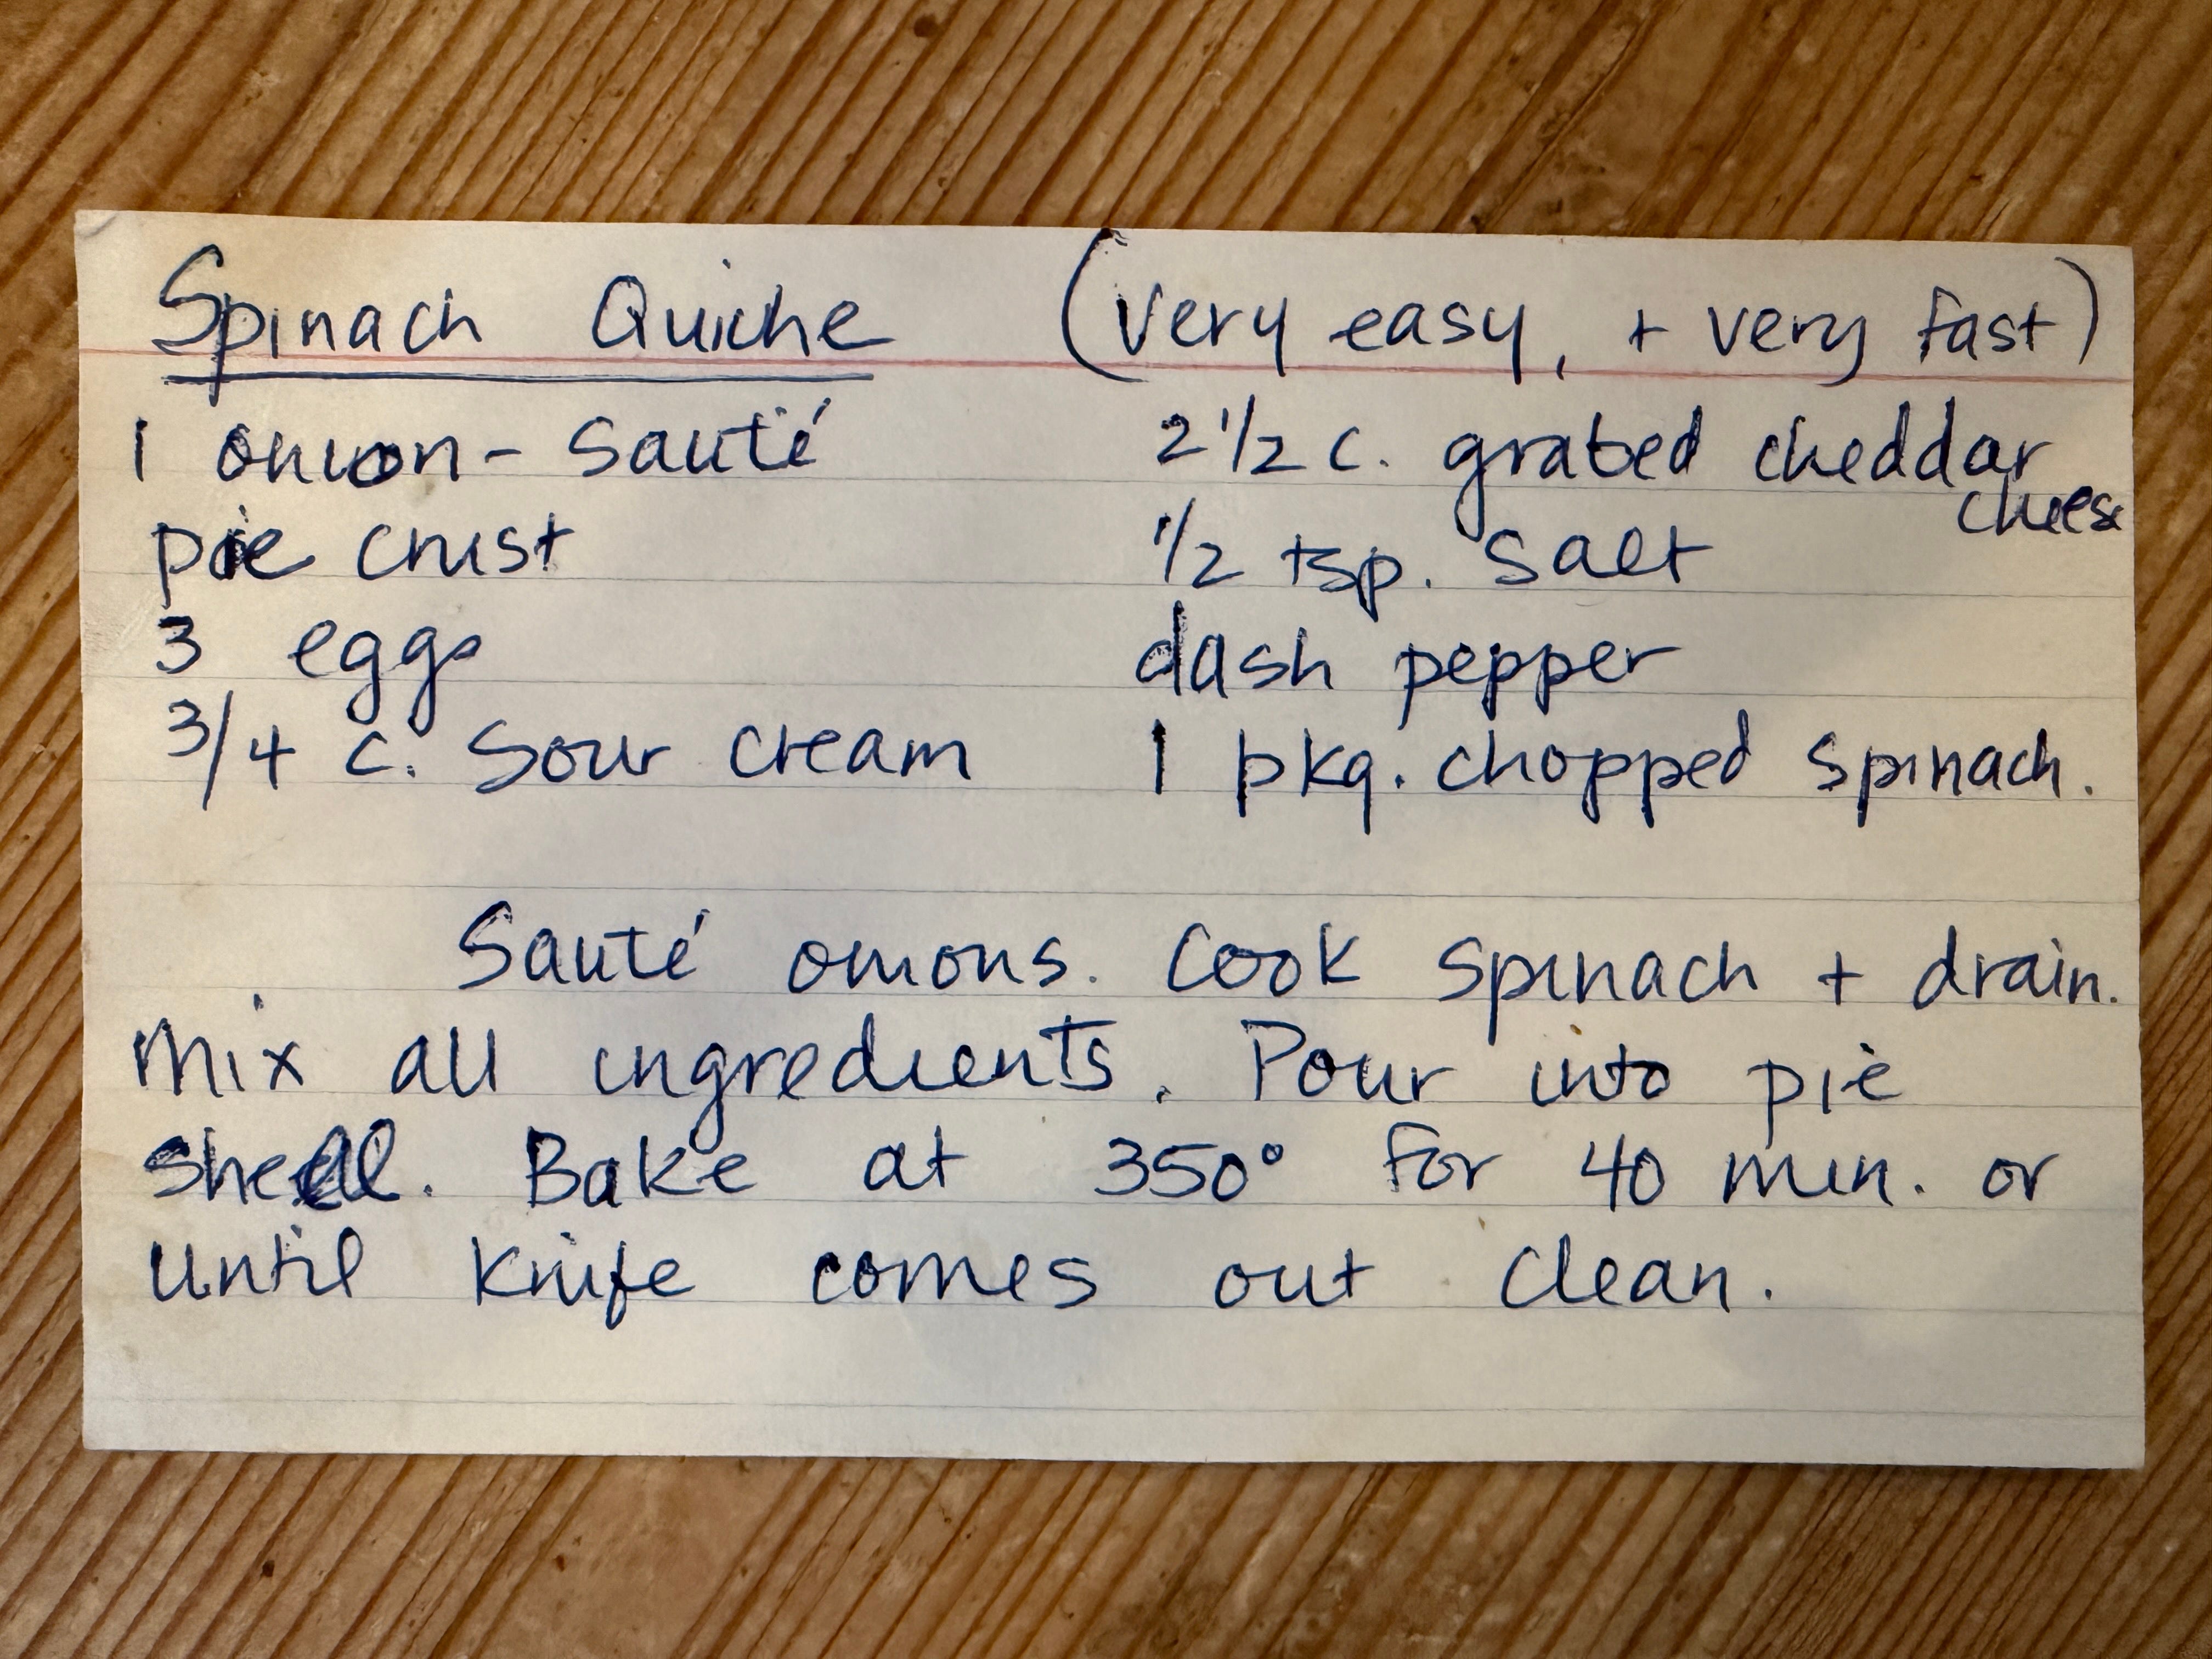 Spinach Quiche (very easy, + very fast)
1 onion - sauté 2 1/2 c. grated cheddar cheese
pie crust 1/2 tsp. salt
3 eggs dash pepper
3/4 c. sour cream 1 pkg. chopped spinach.
Sauté onions. Cook spinach + drain.
Mix all ingredients. Pour into pie
shell. Bake at 350° for 40 min. or
until knife comes out clean.